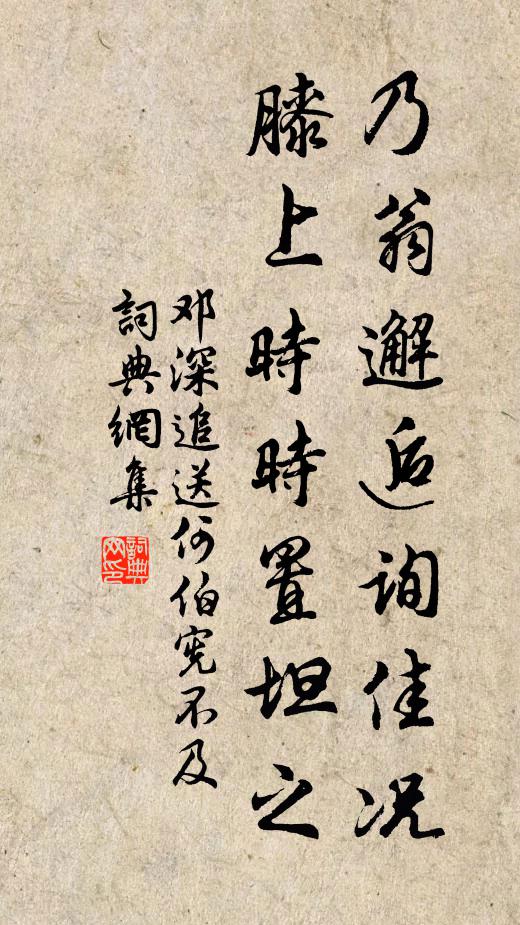 乃翁邂逅询佳况
膝上時時置坦之
邓深追送何伯宪不及
詞典網集
詞典
网印